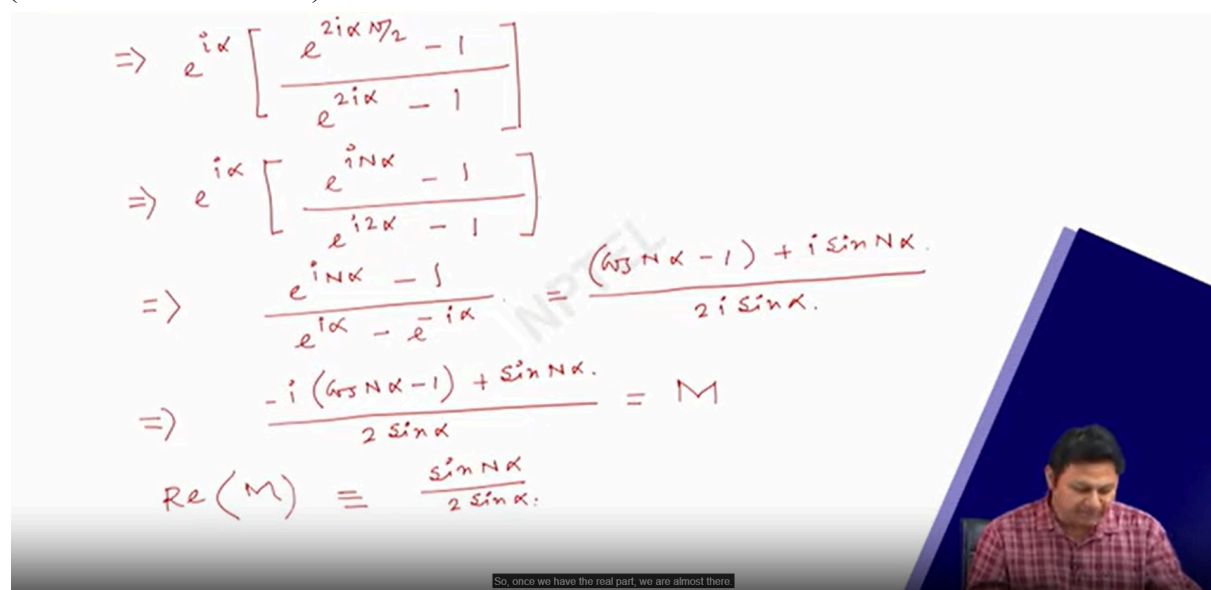 => e^{iα} [ (e^{2iα N/2} - 1) / (e^{2iα} - 1) ]
=> e^{iα} [ (e^{iNα} - 1) / (e^{i2α} - 1) ]
=> (e^{iNα} - 1) / (e^{iα} - e^{-iα}) = ((Cos Nα - 1) + i Sin Nα.) / (2 i Sin α.)
=> (-i (Cos Nα - 1) + Sin Nα.) / (2 Sin α) = M
Re (M) ≡ (Sin Nα) / (2 Sin α.)
NPTEL
So, once we have the real part, we are almost there.